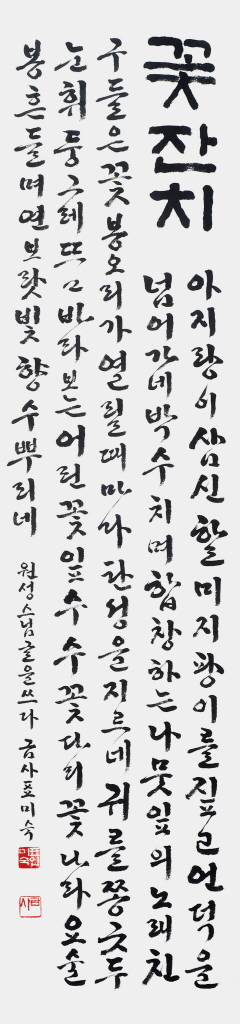 꽃잔치
아지랑이 삼신 할미 지팡이를 짚고 언덕을
넘어가네 박수치며 합창하는 나뭇잎의 노래 친
구들은 꽃봉오리가 열릴 때마다 환성을 지르네 귀를 쫑긋 두
눈 휘둥그레 뜨고 바라보는 어린 꽃잎 수수꽃다리 꽃나라 요술
봉 흔들며 연보랏빛 향수 뿌리네
원성스님 글을 쓰다 금사 표미숙